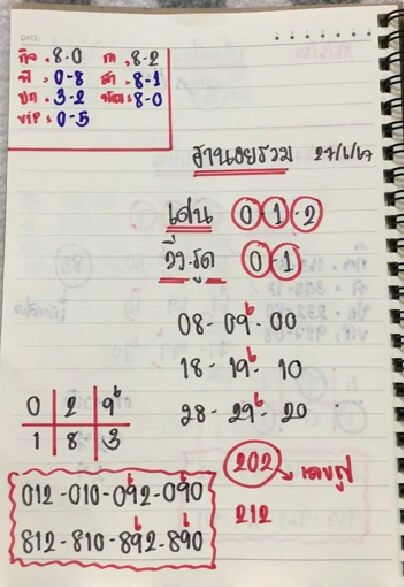 DATE
กิจ . 8-0 ก . 8-2
พิ . 0-8 สำ . 8-1
ปก . 3-2 พัฒ : 8-0
VIP : 0-5
ฮานอยรวม 27/6/67
เด่น 0-1-2
วิ่ง.รูด 0-1
08-09-00
18-19-10
28-29-20
0 2 9
1 8 3
202 เลขรูป
012-010-092-090
212
812-810-892-890